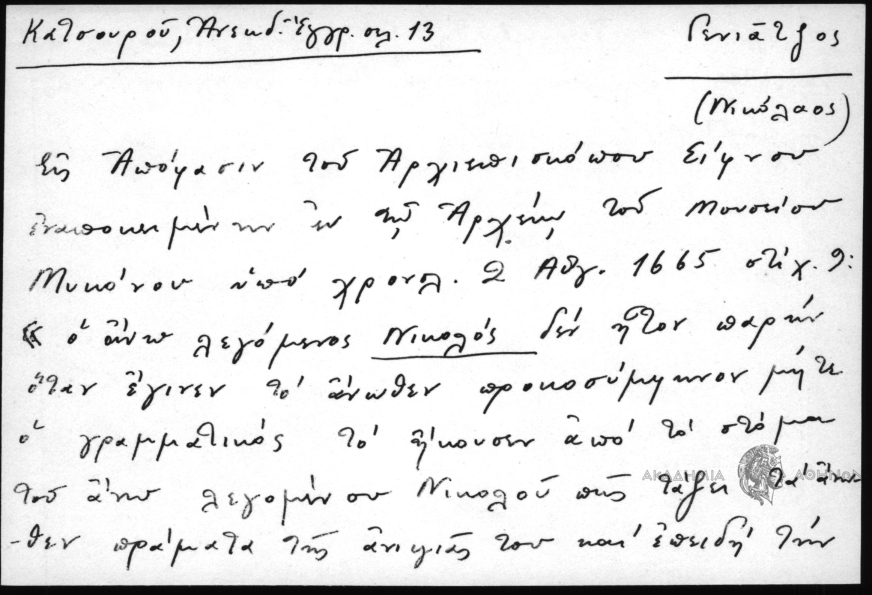 Κατσουροῦ, Ἀνεκδ. Ἔγγρ. σελ. 13
Γενιᾶτζος
(Νικόλαος)
Εἰς Ἀπόφασιν τοῦ Ἀρχιεπισκόπου Σίφνου
ἐναποκειμένην ἐν τῷ Ἀρχείῳ τοῦ Μουσείου
Μυκόνου ὑπό χρονολ. 2 Αὐγ. 1665 στίχ. 9:
« ὁ ἄνω λεγόμενος Νικολός δέν ἦτον παρών
ὅταν ἔγινεν τό ἄνωθεν προκοσύμφωνον μήτε
ὁ γραμματικός τό ἤκουσεν ἀπό τό στόμα
τοῦ ἄνω λεγομένου Νικολοῦ πῶς τάζει τά ἄνω
-θεν πράματα τῆς ἀνιψιᾶς του καί ἐπειδή τήν
ΑΚΑΔΗΜΙΑ ΑΘΗΝΩΝ